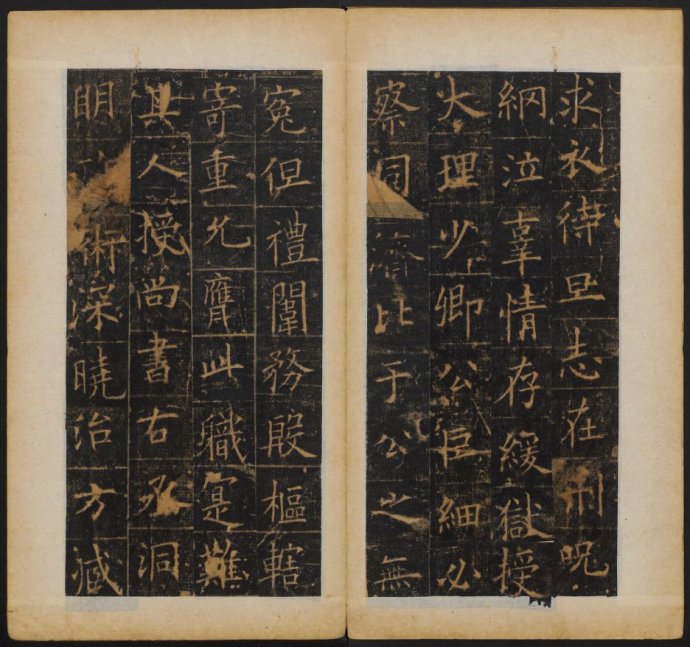 求衣待旦志在刑呪
網泣辜情存緩獄授
大理少卿公巨細必
察同濟比于公之無
冤但禮闈務殷樞轄
寄重允膺此職寔難
其人授尚書右丞洞
明術深曉治方臧